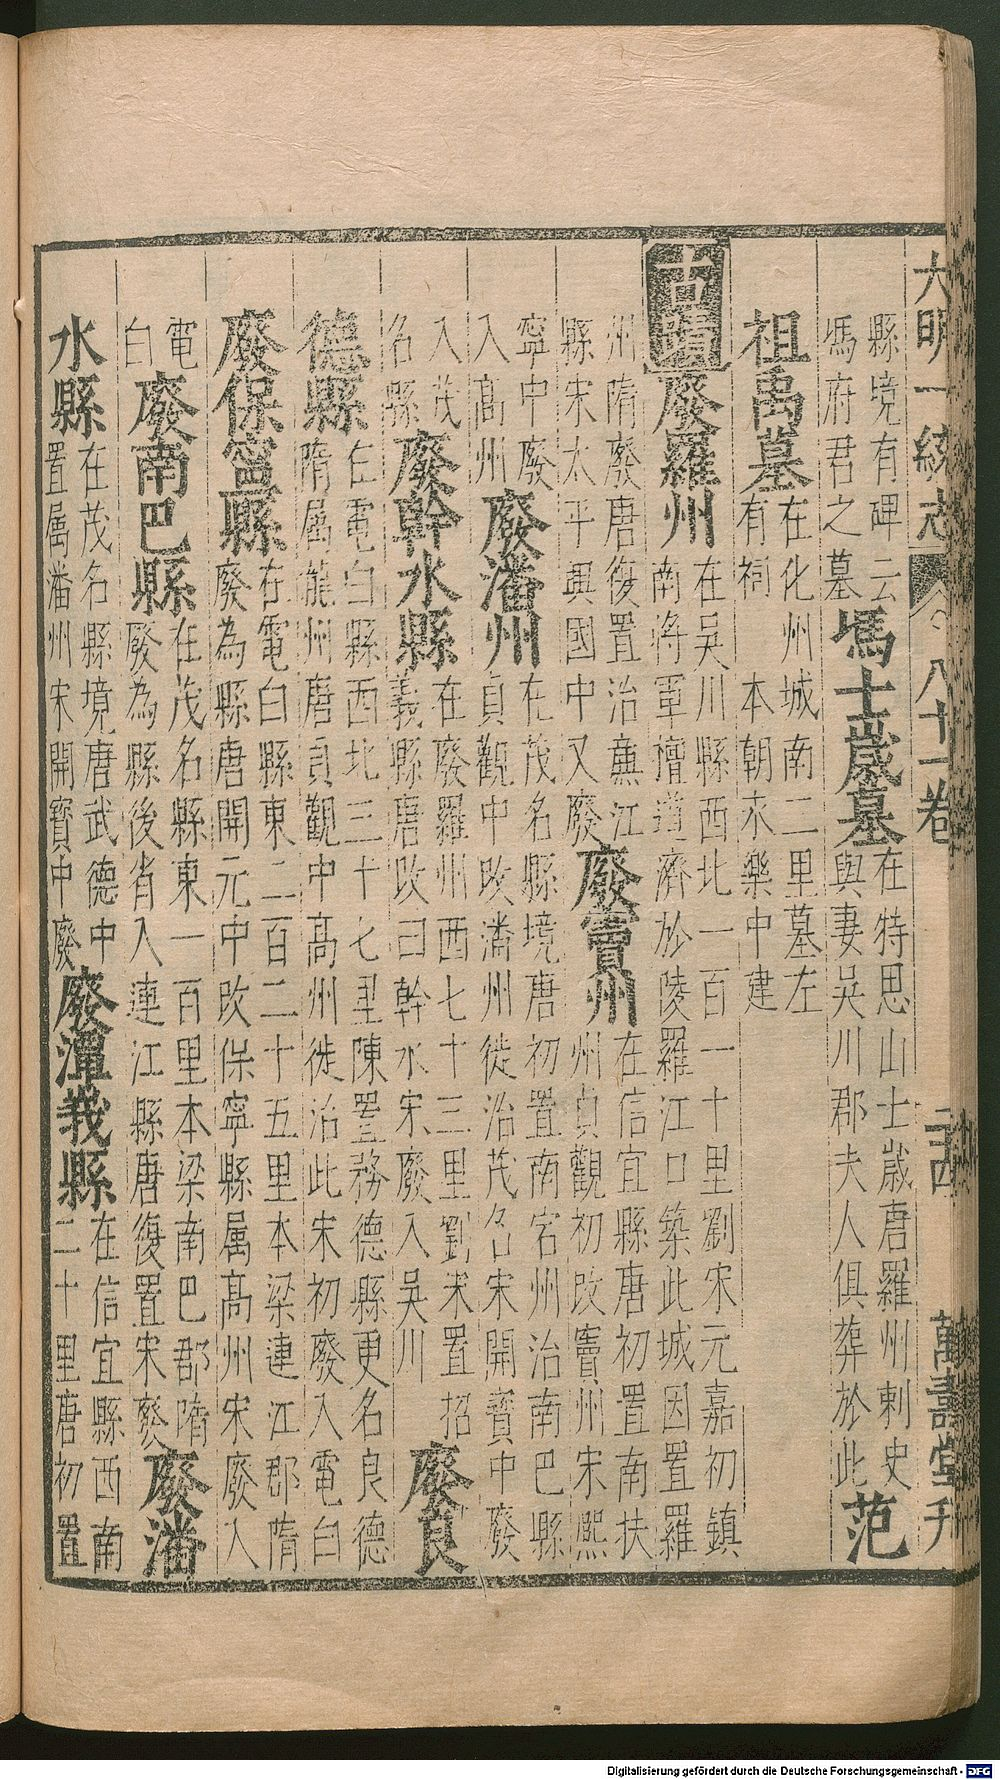 大明一統志 八十一卷 二四 萬壽堂刋
縣境有碑云馮府君之墓 馮士歲墓 在特思山士歲唐羅州刺史與妻吳川郡夫人俱葬於此 范
祖禹墓 在化州城南二里墓左有祠 本朝永樂中建
古蹟 廢羅州 在吳川縣西北一百一十里劉宋元嘉初鎮南將軍檀道濟於陵羅江口築此城因置羅
州隋廢唐復置治亷江縣宋太平興國中又廢 廢竇州 在信宜縣唐初置南扶州貞觀初改竇州宋熙
寧中廢入高州 廢潘州 在茂名縣境唐初置南宕州治南巴縣貞觀中改潘州徙治茂名宋開寶中廢
入茂名縣 廢幹水縣 在廢羅州西七十三里劉宋置招義縣唐改曰幹水宋廢入吳川 廢良
德縣 在電白縣西北三十七里陳置務德縣更名良德隋屬龍州唐貞觀中高州徙治此宋初廢入電白
廢保寧縣 在電白縣東二百二十五里本梁連江郡隋廢為縣唐開元中改保寧縣屬高州宋廢入
電白 廢南巴縣 在茂名縣東一百里本梁南巴郡隋廢為縣後省入連江縣唐復置宋廢 廢潘
水縣 在茂名縣境唐武德中置屬潘州宋開寶中廢 廢潭峩縣 在信宜縣西南二十里唐初置
Digitalisierung gefördert durch die Deutsche Forschungsgemeinschaft - DFG